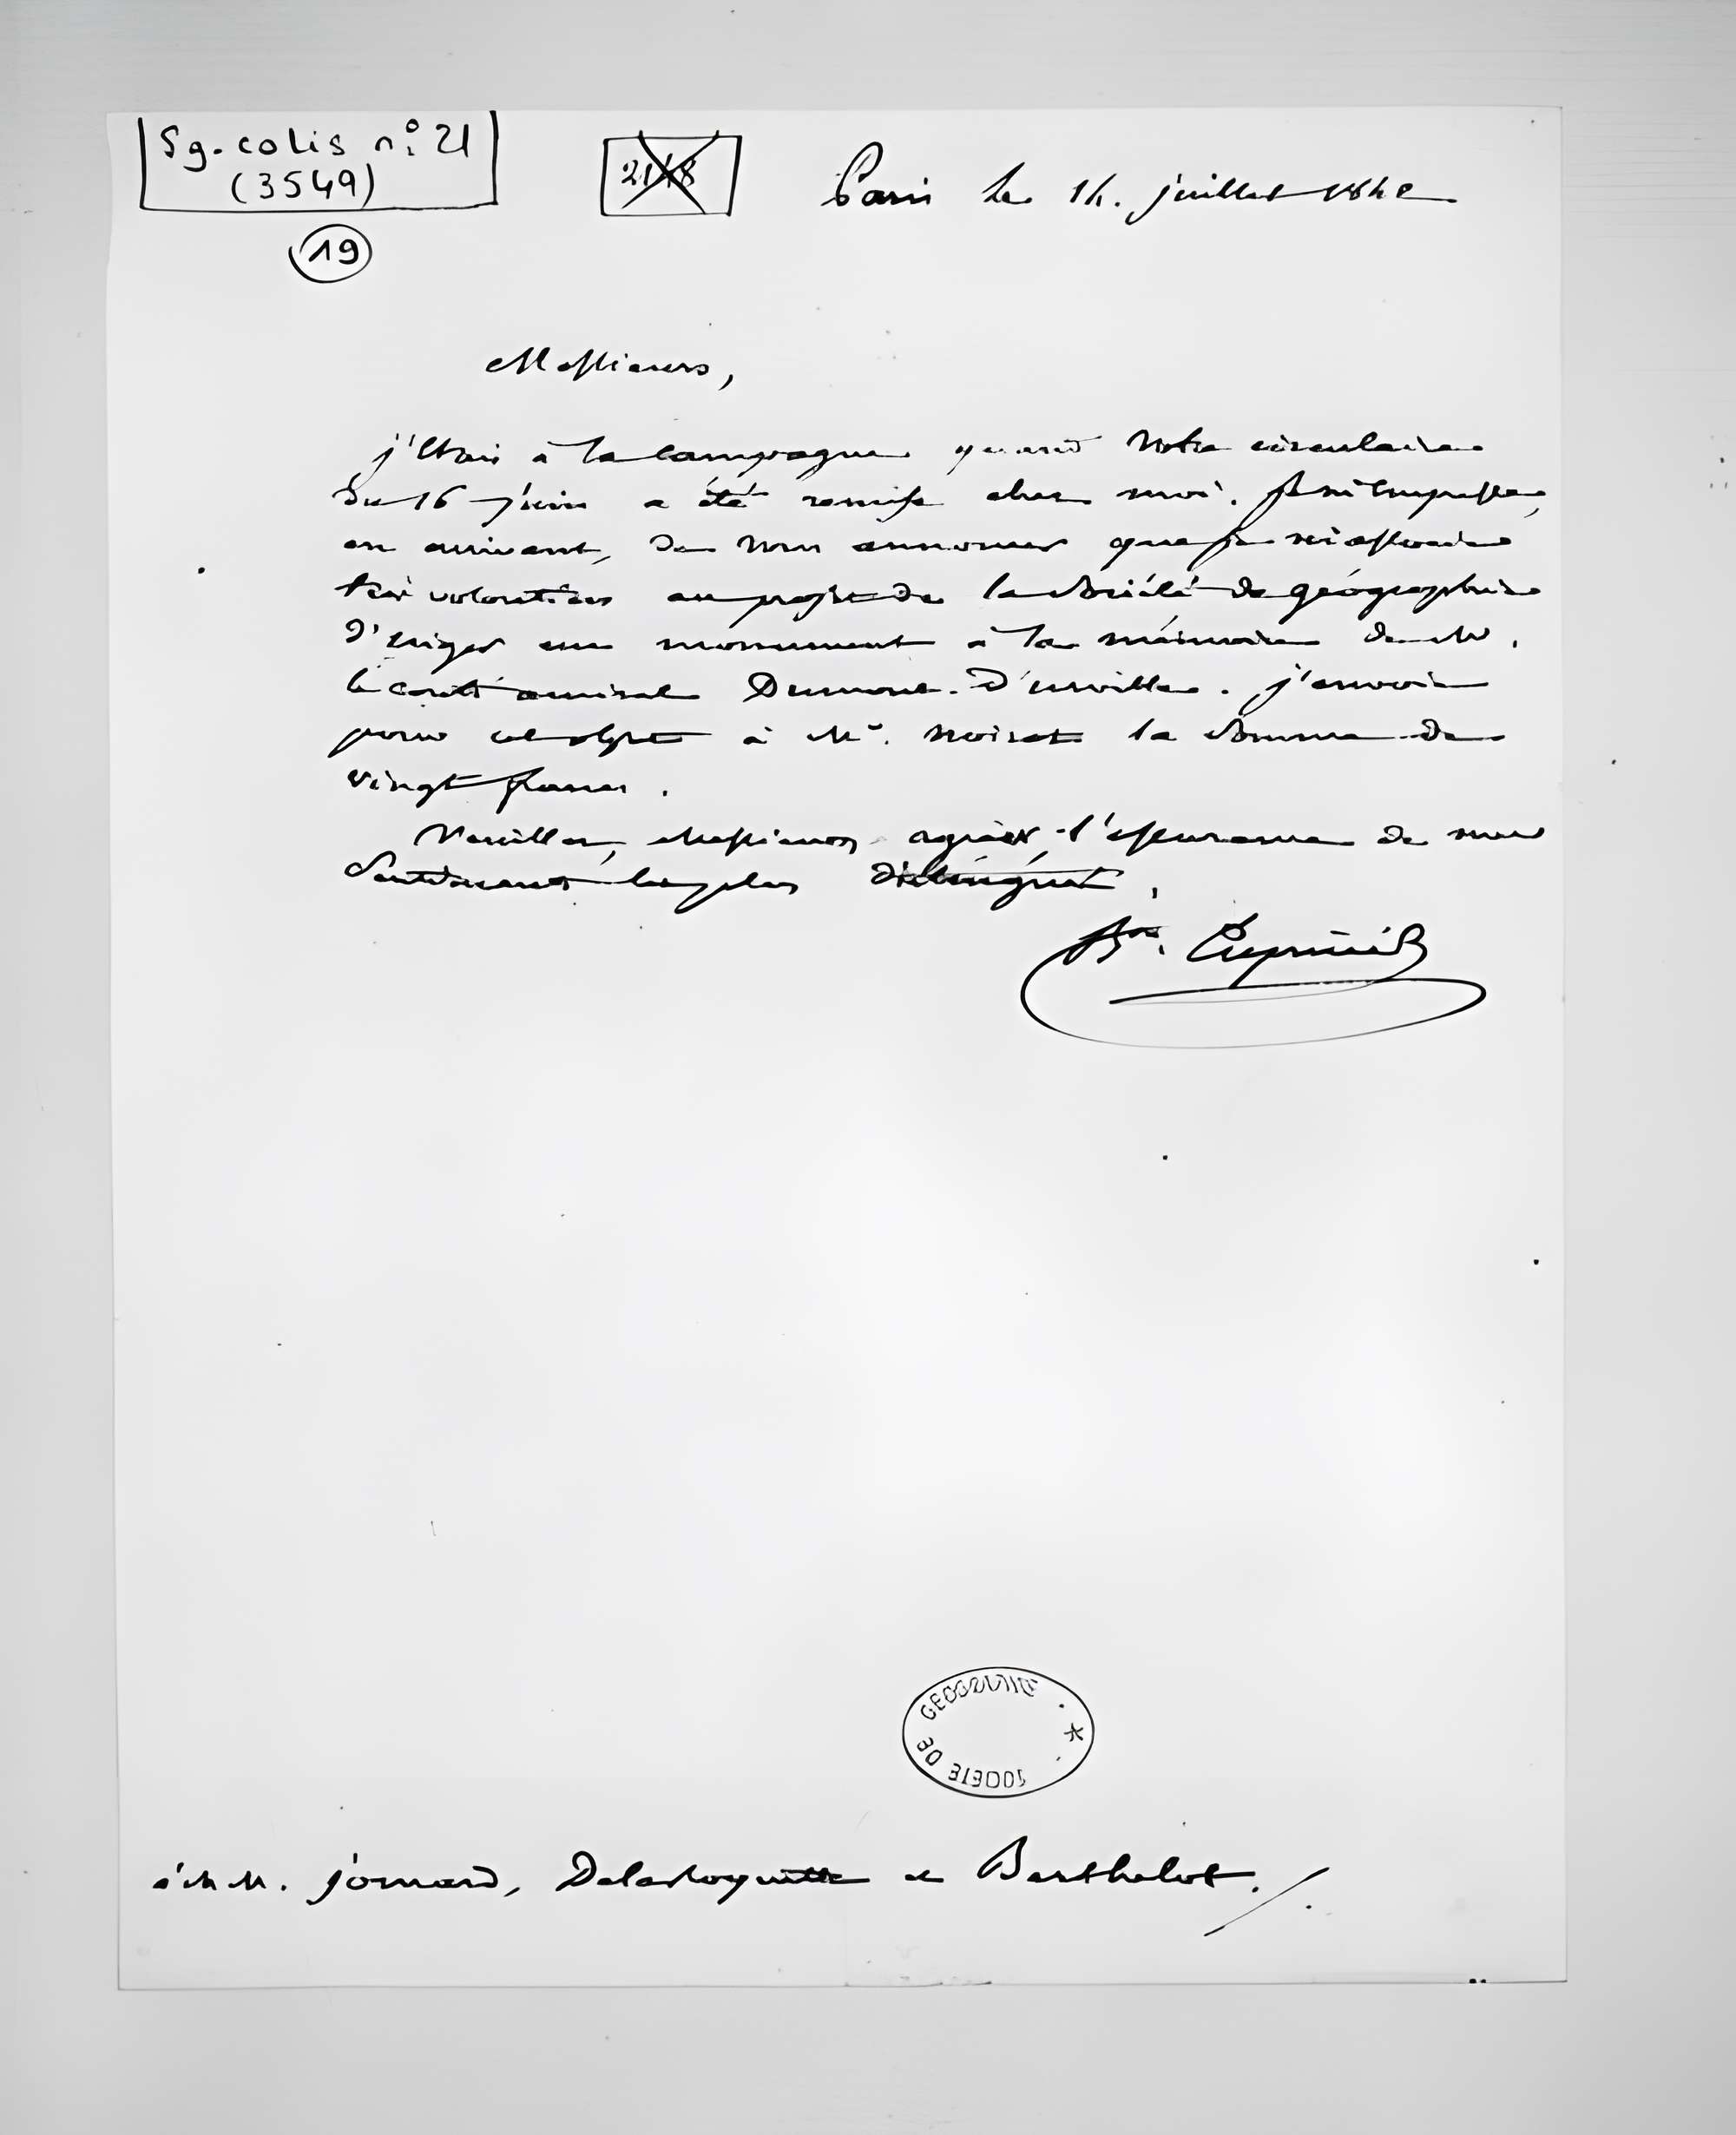 Sg. colis n° 21
(3549)
2118
19
Paris le 14. juillet 1842
Messieurs,
j'étais à la campagne quand votre circulaire
du 16 juin a été remise chez moi. je m'empresse,
en arrivant, de vous annoncer que je m'associe
très volontiers au projet de la Société de géographie
d'ériger un monument à la mémoire de M.
le contre amiral Dumont-d'urville. j'envoie
pour cet objet à Mr. noirot la somme de
vingt francs.
Veuillez, Messieurs, agréer, l'assurance de mes
Sentiments les plus distingués.
Bon.
SOCIETE DE GEOGRAPHIE
à MM. jomard, Delaroquette et Berthelot./.